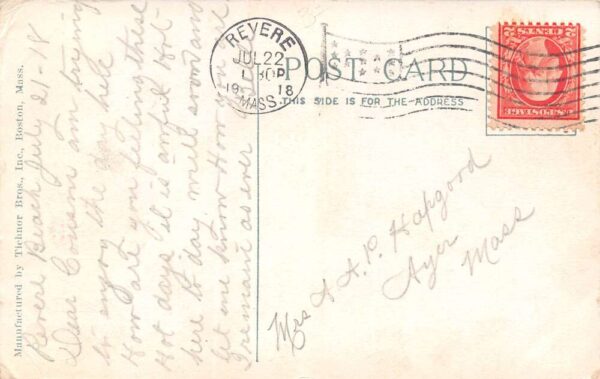 Manufactured by Tichnor Bros., Inc., Boston, Mass.
Revere Beach July 21-18
Dear Cousins am trying
to enjoy the day here
How are you feeling these
Hot days it is awful Hot
here to day will soon and
let one know How you
as ever
REVERE
JUL 22
1 30 P
19 18
MASS.
POST CARD
THIS SIDE IS FOR THE ADDRESS
U.S. POSTAGE
2 CENTS 2
Mrs A. P. Hapgood
Ayer
Mass